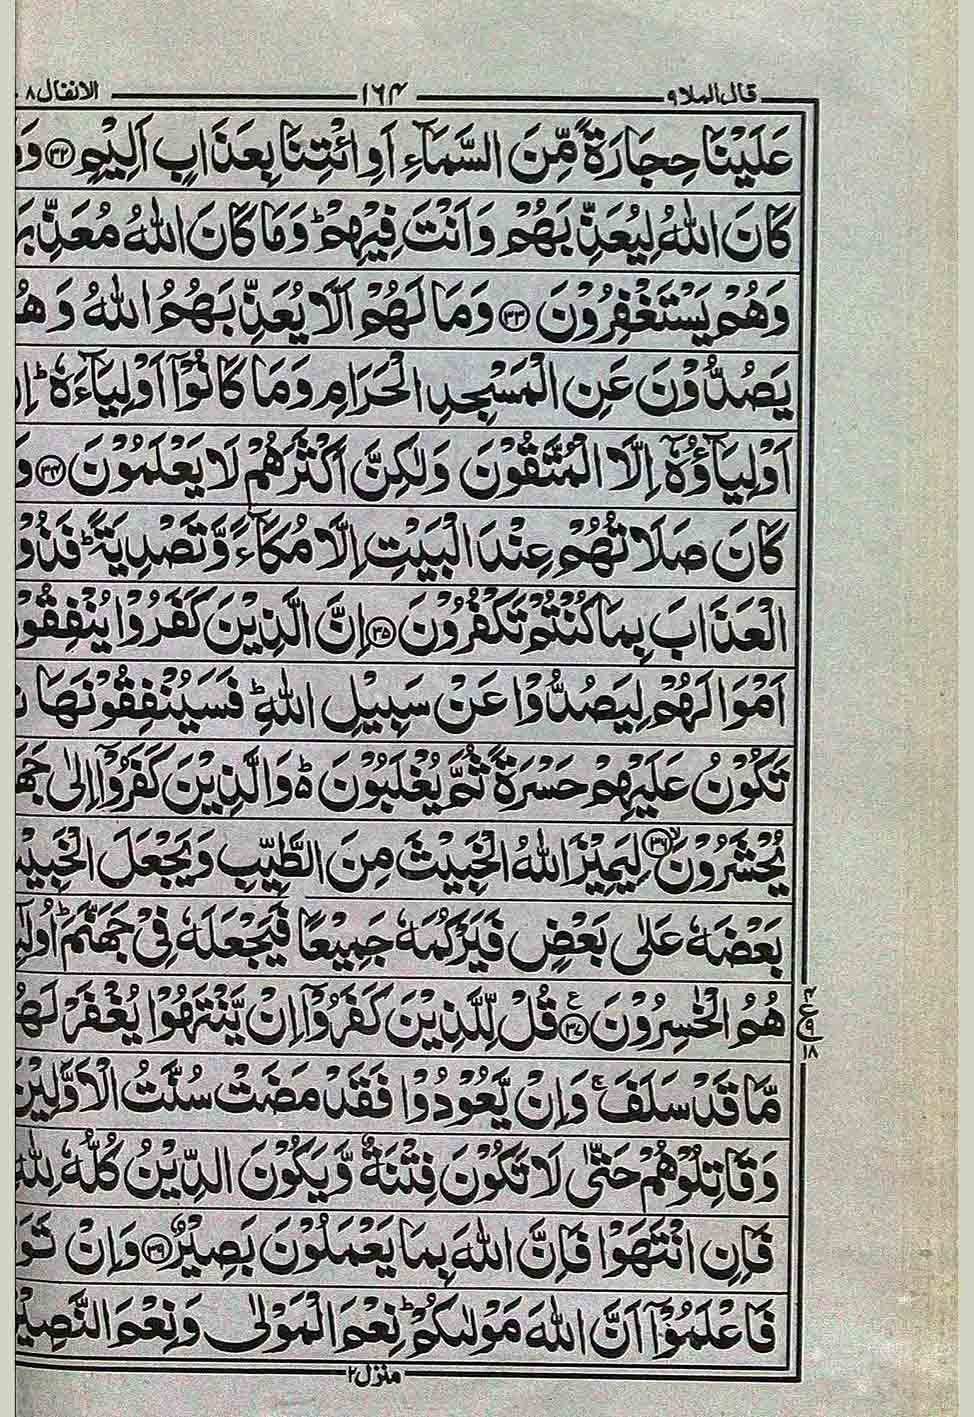 قال الملا ٩ ١٦٤ الانفال ٨
عَلَيْنَا حِجَارَةً مِّنَ السَّمَآءِ اَوِ ائْتِنَا بِعَذَابٍ اَلِيْمٍ ﴿۳۲﴾
كَانَ اللّٰهُ لِيُعَذِّبَهُمْ وَاَنْتَ فِيْهِمْ ؕ وَمَا كَانَ اللّٰهُ مُعَذِّبَ
وَهُمْ يَسْتَغْفِرُوْنَ ﴿۳۳﴾ وَمَا لَهُمْ اَلَّا يُعَذِّبَهُمُ اللّٰهُ وَهُ
يَصُدُّوْنَ عَنِ الْمَسْجِدِ الْحَرَامِ وَمَا كَانُوْۤا اَوْلِيَآءَهٗ ؕ اِ
اَوْلِيَآؤُهٗۤ اِلَّا الْمُتَّقُوْنَ وَلٰكِنَّ اَكْثَرَهُمْ لَا يَعْلَمُوْنَ ﴿۳۴﴾ وَ
كَانَ صَلَاتُهُمْ عِنْدَ الْبَيْتِ اِلَّا مُكَآءً وَّتَصْدِيَةً ؕ فَذُوْ
الْعَذَابَ بِمَا كُنْتُمْ تَكْفُرُوْنَ ﴿۳۵﴾ اِنَّ الَّذِيْنَ كَفَرُوْا يُنْفِقُوْ
اَمْوَالَهُمْ لِيَصُدُّوْا عَنْ سَبِيْلِ اللّٰهِ ؕ فَسَيُنْفِقُوْنَهَا
تَكُوْنُ عَلَيْهِمْ حَسْرَةً ثُمَّ يُغْلَبُوْنَ ۬ؕ وَالَّذِيْنَ كَفَرُوْۤا اِلٰى جَهَ
يُحْشَرُوْنَ ﴿ۙ۳۶﴾ لِيَمِيْزَ اللّٰهُ الْخَبِيْثَ مِنَ الطَّيِّبِ وَيَجْعَلَ الْخَبِيْ
بَعْضَهٗ عَلٰى بَعْضٍ فَيَرْكُمَهٗ جَمِيْعًا فَيَجْعَلَهٗ فِىْ جَهَنَّمَ ؕ اُولٰٓئِ
هُمُ الْخٰسِرُوْنَ ﴿۳۷﴾ ع قُلْ لِّلَّذِيْنَ كَفَرُوْۤا اِنْ يَّنْتَهُوْا يُغْفَرْ لَهُ
٤ ع ٩ ١٨
مَّا قَدْ سَلَفَ ۚ وَاِنْ يَّعُوْدُوْا فَقَدْ مَضَتْ سُنَّتُ الْاَوَّلِيْنَ
وَقَاتِلُوْهُمْ حَتّٰى لَا تَكُوْنَ فِتْنَةٌ وَّيَكُوْنَ الدِّيْنُ كُلُّهٗ لِلّٰهِ
فَاِنِ انْتَهَوْا فَاِنَّ اللّٰهَ بِمَا يَعْمَلُوْنَ بَصِيْرٌ ﴿۳۹﴾ وَاِنْ تَوَ
فَاعْلَمُوْۤا اَنَّ اللّٰهَ مَوْلٰىكُمْ ؕ نِعْمَ الْمَوْلٰى وَنِعْمَ النَّصِيْرُ
منزل ٢